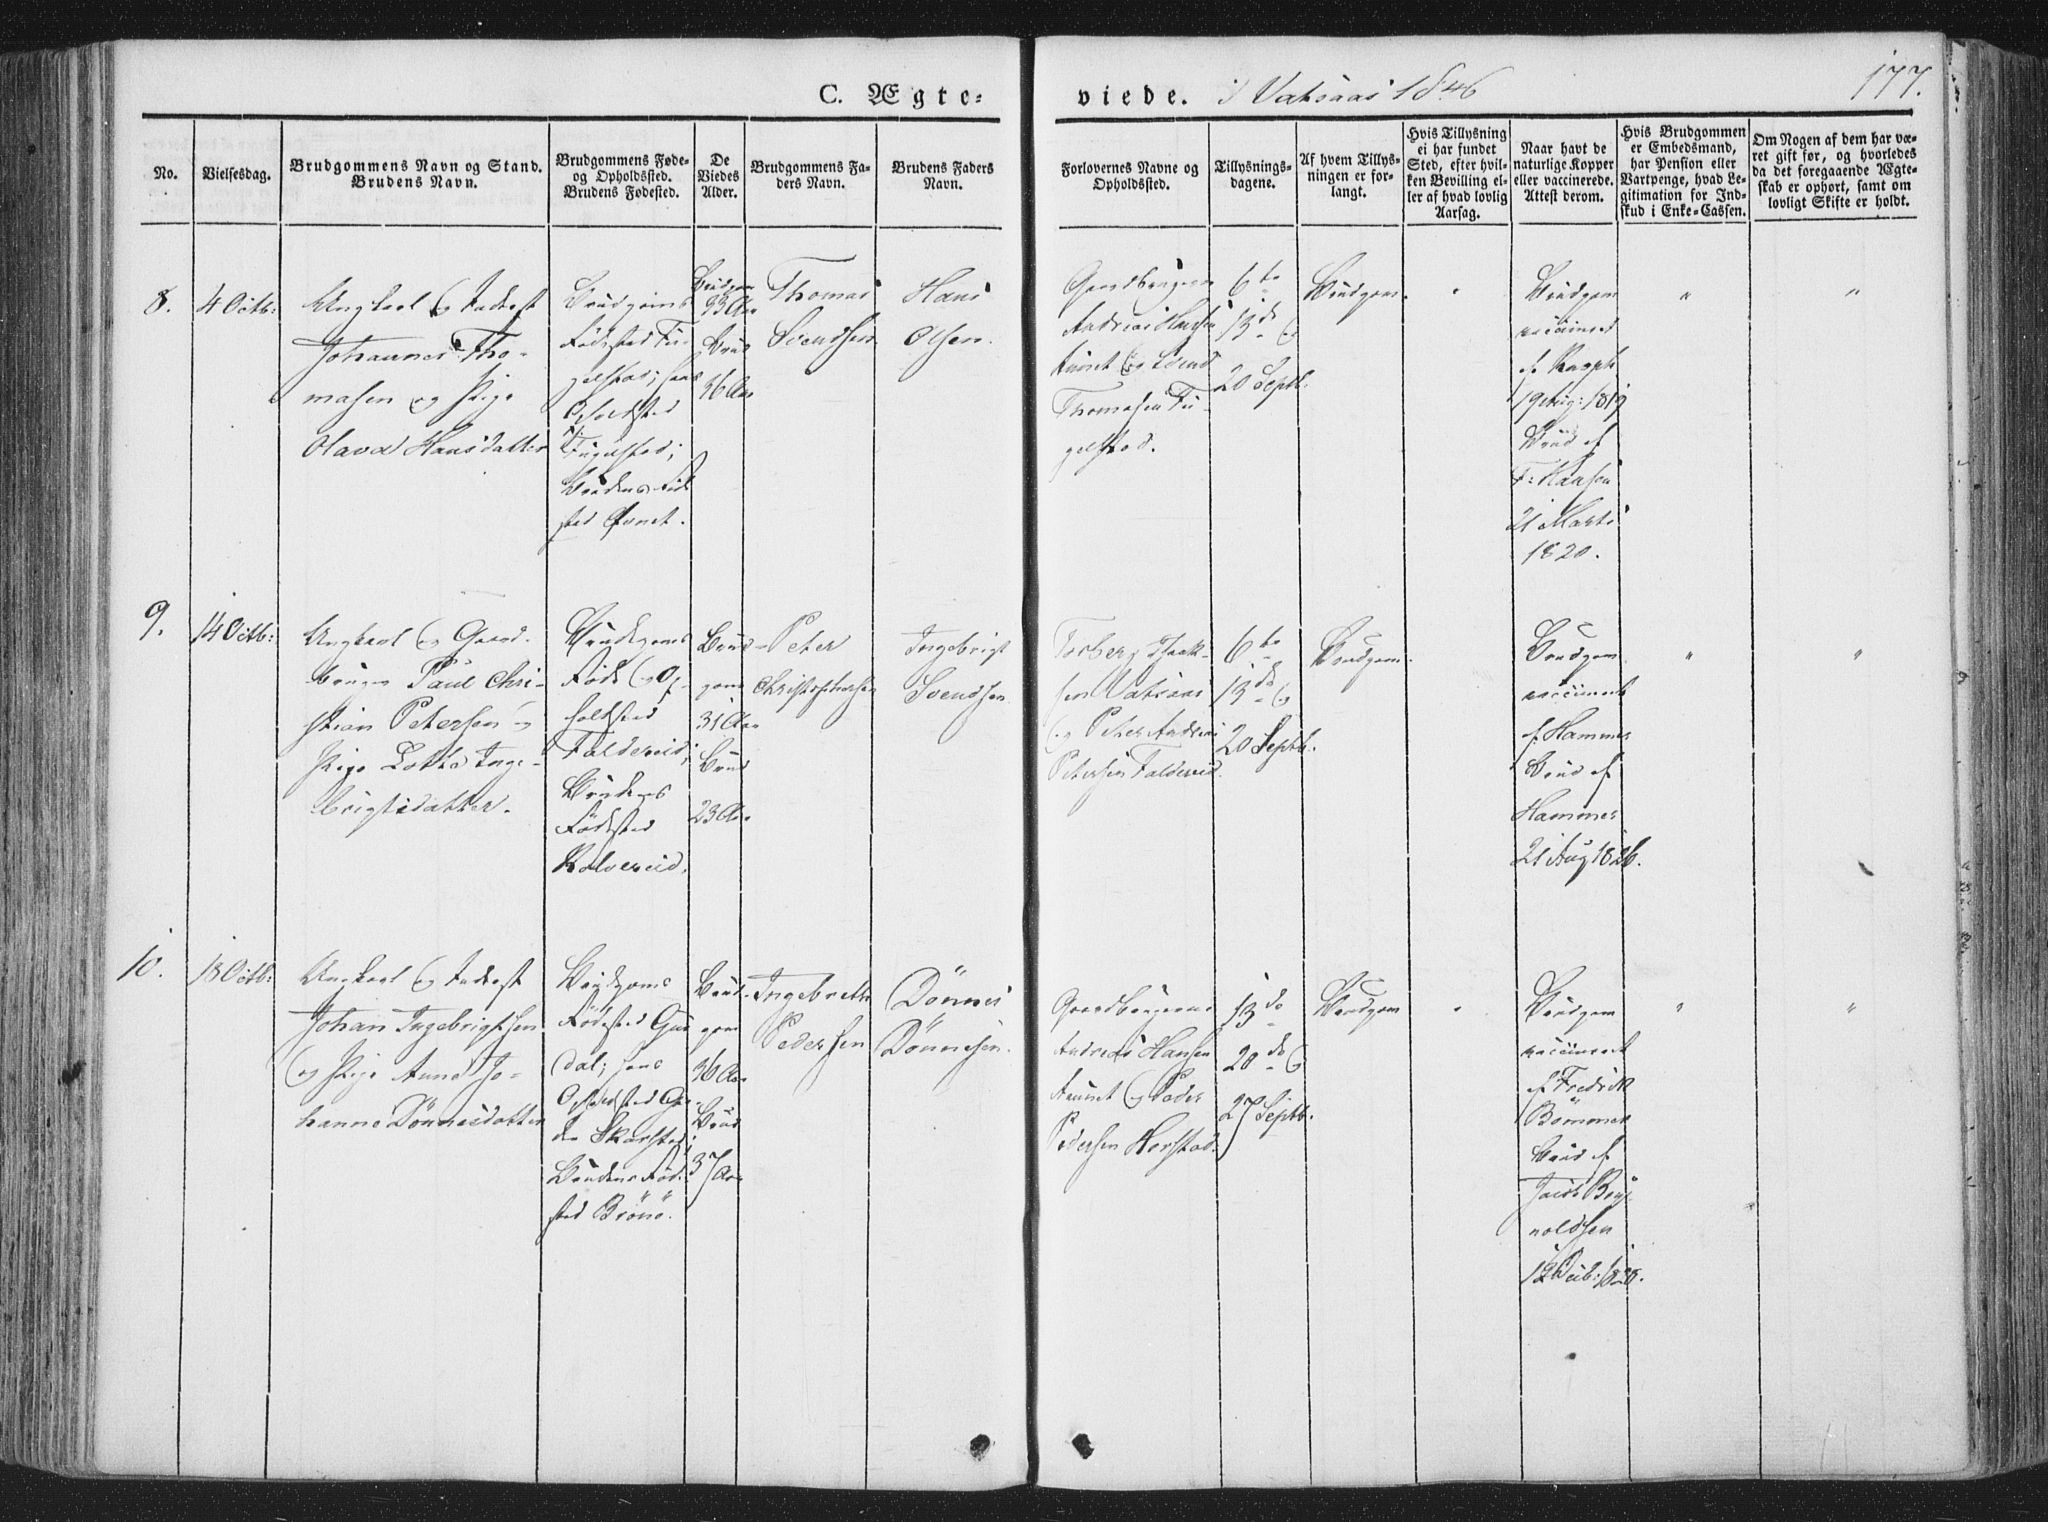 C. Ægteviede. i Vatsaas 1846
177.
No.
Vielsesdag.
Brudgommens Navn og Stand.
Brudens Navn.
Brudgommens Føde-
og Opholdssted.
Brudens Fødested.
De
Viedes
Alder.
Brudgommens Fa-
ders Navn.
Brudens Faders
Navn.
Forlovernes Navne og
Opholdssted.
Tillysnings-
dagene.
Af hvem Tillys-
ningen er for-
langt.
Hvis Tillysning
ei har fundet
Sted, efter hvil-
ken Bevilling el-
ler af hvad lovlig
Aarsag.
Naar havt de
naturlige Kopper
eller vaccinerede.
Attest derom.
Hvis Brudgommen
er Embedsmand,
har Pension eller
Vartpenge, hvad Le-
gitimation for Ind-
skud i Enke-Cassen.
Om Nogen af dem har væ-
ret gift før, og hvorledes
da det foregaaende Ægte-
skab er ophørt, samt om
lovligt Skifte er holdt.
8.
4 Octb:
Ungkarl og Inderst
Johannes Tho-
masen og Pige
Olava Hansdatter
Brudgoms
Fødested Fu-
gelstad; hans
Opholdsted
Fugelstad;
Brudens Føde
sted
Brudgom
Aar
Brud
Aar
Thomas
Svendsen
Hans
Olsen.
Gaardbrugerne
Andreas Hansen
og Svend
Thomasen Fu-
gelstad.
6te
13de og
20 Septb.
Brudgom.
"
Brudgom
vaccineret
af
19 Aug: 1819
Brud af
F: Hansen
21 Marts
1820.
"
"
9.
14 Octb:
Ungkarl og Gaard-
bruger Paul Chri-
stian Petersen
Pige Lotha Inge-
brigtsdatter.
Brudgoms
Føde og Op-
holdsted
Foldereid;
Brudens
Fødested
Kolvereid.
Brud-
gom
31 Aar
Brud
23 Aar
Peter
Christophersen
Ingebrigt
Svendsen
Torberg Isak-
sen Vatsaas
og Peter Andreas
Petersen Foldereid.
6te
13de og
20 Septb.
Brudgom.
Brudgom
vaccineret
af Hammer
Brud af
Hammer
21 Aug 1826.
"
"
10.
18 Octb:
Ungkarl og Inderst
Johan Ingebrigtsen
og Pige Anne Jo-
hanna Dönnesdatter
Brudgoms
Fødested Gud
dal; hans
Opholdsted
Skarstad;
Brudens Føde-
sted Brönö.
Brud-
gom
Aar
Brud
37 Aar
Ingebreth
Pedersen
Dönnes
Dönnesen.
Gaardbrugerne
Andreas Hansen
og Peder
Pedersen Horstad.
13de
20de og
27 Septb.
Brudgom
"
Brudgom
vaccineret
af Fredrik
Bömmer
Brud af
Jacob
noldsen
"
"